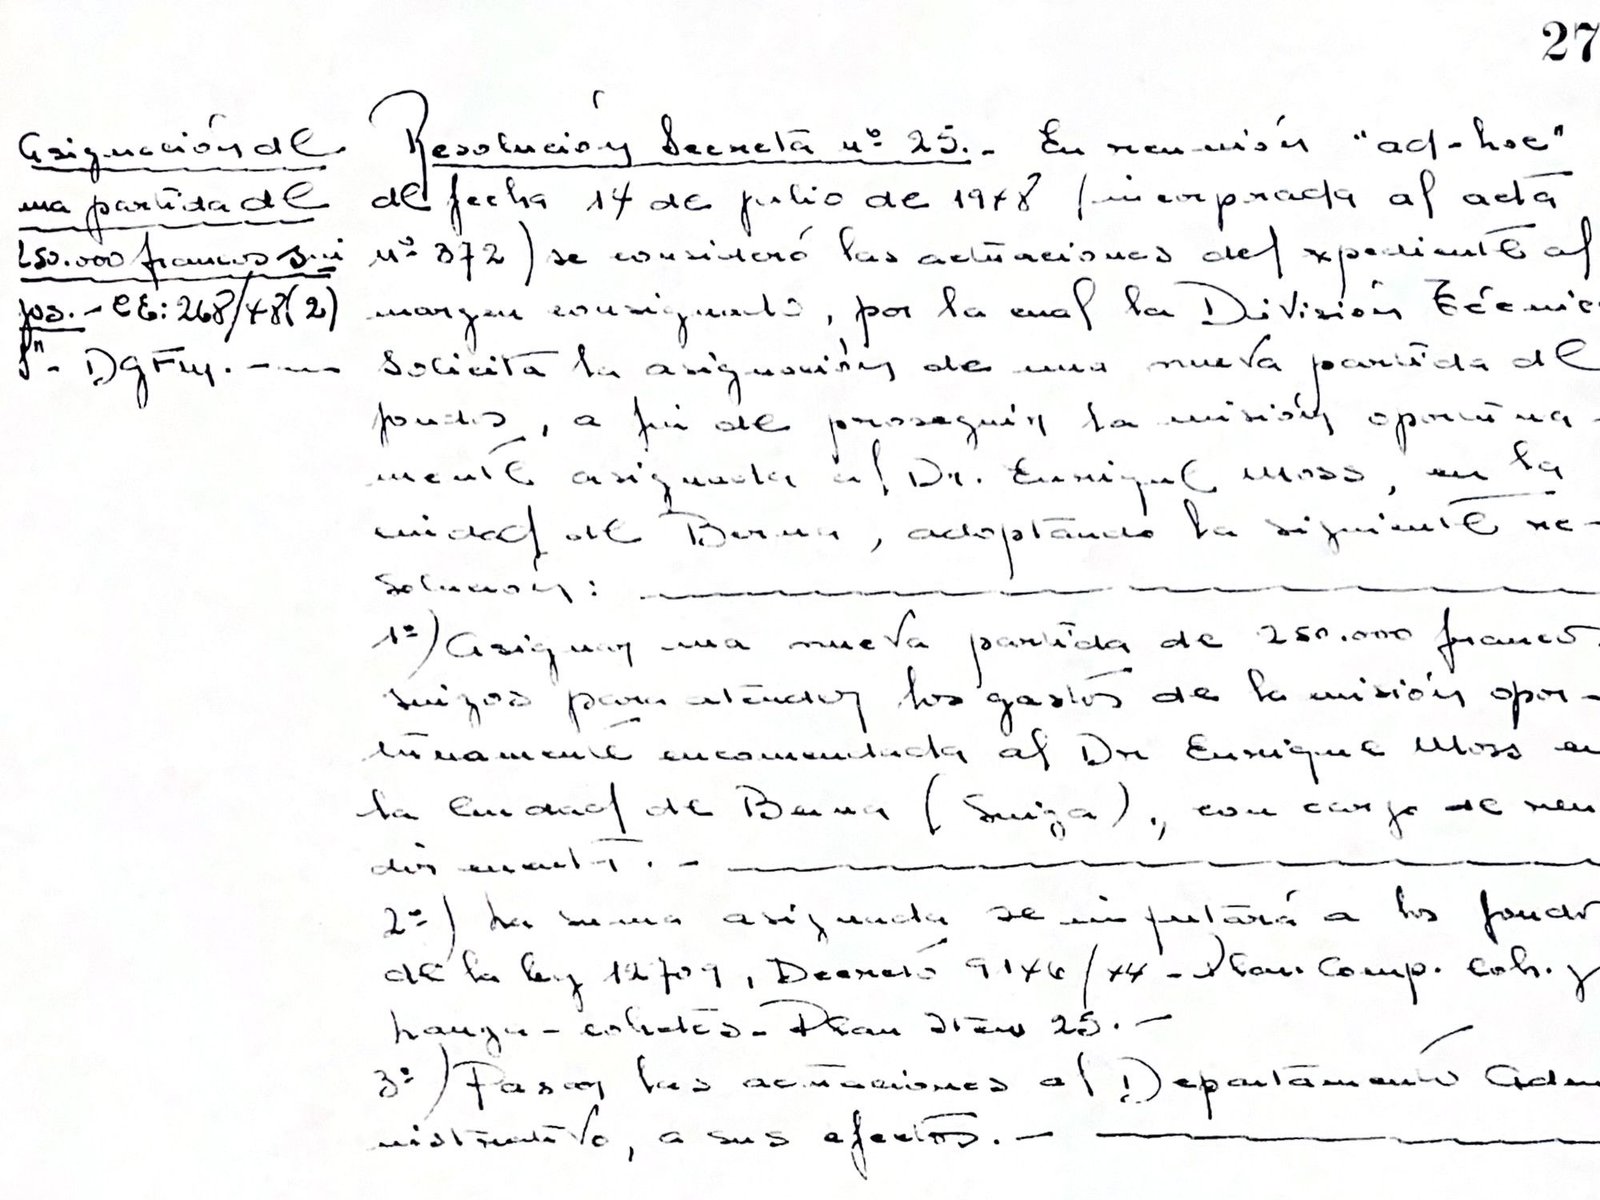 27
Asignación de
una partida de
250.000 francos sui
zos. - CE: 268/48(2)
DGFM. - - -
Resolución Secreta nº 25. - En reunión "ad-hoc"
de fecha 14 de julio de 1948 (incorporada al acta
nº 372) se consideró las actuaciones del expediente al
margen consignado, por la cual la División Técnic
solicita la asignación de una nueva partida de
fondos, a fin de proseguir la misión oportuna-
mente asignada al Dr. Enrique Moss, en la
ciudad de Berna, adoptando la siguiente re-
solución:
1º) Asignar una nueva partida de 250.000 francos
suizos para atender los gastos de la misión opor-
tunamente encomendada al Dr Enrique Moss en
la Ciudad de Berna (Suiza), con cargo de ren
dir cuenta. -
2º) La suma asignada se imputará a los fondos
de la ley 12709, Decreto 9146/44 - Plan. Comp. Coh. y
lanza-cohetes - Plan Item 25. -
3º) Pasar las actuaciones al Departamento Adm
nistrativo, a sus efectos. -